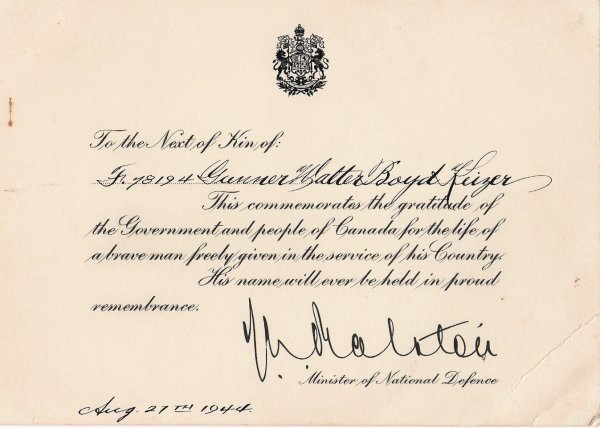 To the Next of Kin of:
F. 78194 Gunner Walter Boyd Kizer
This commemorates the gratitude of
the Government and people of Canada for the life of
a brave man freely given in the service of his Country.
His name will ever be held in proud
remembrance.
Ralston
Minister of National Defence
Aug. 27TH 1944.